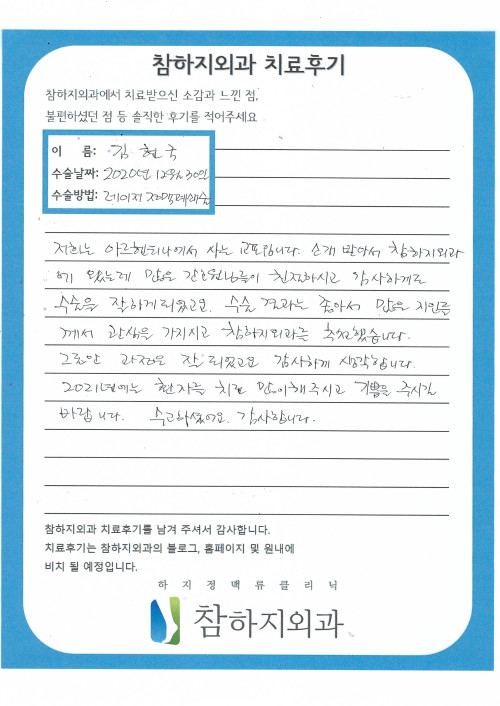 참하지외과 치료후기
참하지외과에서 치료받으신 소감과 느낀 점,
불편하셨던 점 등 솔직한 후기를 적어주세요
이 름: 김현국
수술날짜: 2020년 12월 30일
수술방법: 레이저 정맥폐쇄술
저희는 아르헨티나에서 사는 교포입니다. 소개 받아서 참하지외과
에 왔는데 많은 간호원님들이 친절하시고 감사하게도
수술을 잘하게 되었고요. 수술 결과는 좋아서 많은 지인들
께서 관심을 가지시고 참하지외과를 축하했습니다.
그동안 과정은 잘 되었고요 감사하게 생각합니다.
2021년에는 환자들 치료 많이해주시고 기쁨을 주시길
바랍니다. 수고하셨어요. 감사합니다.
참하지외과 치료후기를 남겨 주셔서 감사합니다.
치료후기는 참하지외과의 블로그, 홈페이지 및 원내에
비치 될 예정입니다.
하지정맥류클리닉
참하지외과